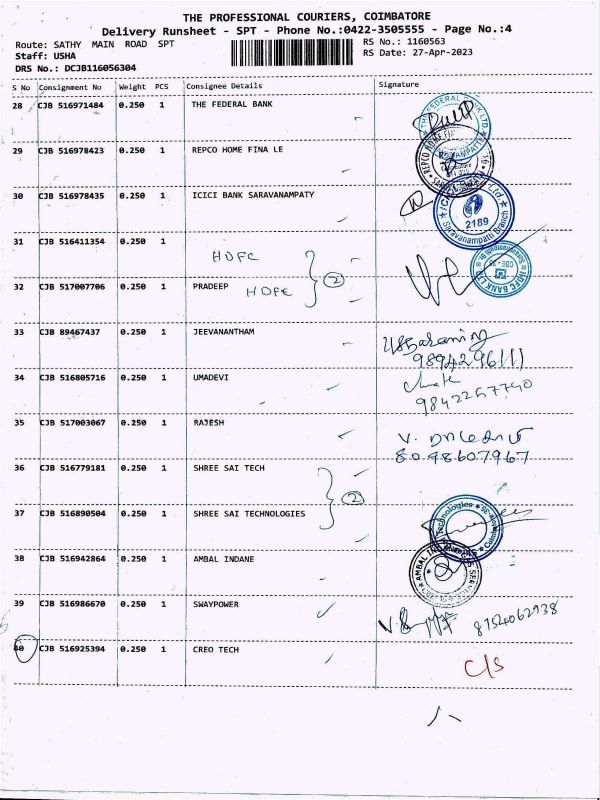 THE PROFESSIONAL COURIERS, COIMBATORE
Delivery Runsheet - SPT - Phone No.:0422-3505555 - Page No.:4
Route: SATHY MAIN ROAD SPT
RS No.: 1160563
Staff: USHA
RS Date: 27-Apr-2023
DRS No.: DCJB116056304
S No Consignment No Weight PCS Consignee Details Signature
28 CJB 516971484 0.250 1 THE FEDERAL BANK
THE FEDERAL BANK LTD.
29 CJB 516978423 0.250 1 REPCO HOME FINA LE
REPCO HOME FIN
30 CJB 516978435 0.250 1 ICICI BANK SARAVANAMPATY
2189
Saravanampatti Branch
31 CJB 516411354 0.250 1
HDFC
HDFC BANK LTD
32 CJB 517007706 0.250 1 PRADEEP HDFC
2
33 CJB 89467437 0.250 1 JEEVANANTHAM
9894296111
34 CJB 516805716 0.250 1 UMADEVI
9842257740
35 CJB 517003067 0.250 1 RAJESH
V.
8098607967
36 CJB 516779181 0.250 1 SHREE SAI TECH
2
37 CJB 516890504 0.250 1 SHREE SAI TECHNOLOGIES
Technologies
38 CJB 516942864 0.250 1 AMBAL INDANE
AMBAL
39 CJB 516986670 0.250 1 SWAYPOWER
8754062938
40 CJB 516925394 0.250 1 CREO TECH
C/S